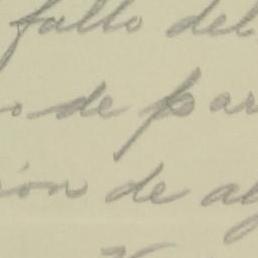 fallo del
o de par
ión de al